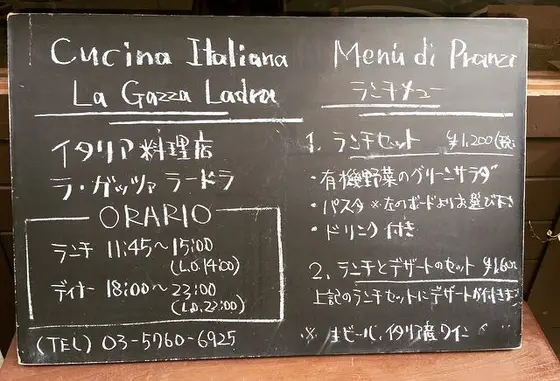 Cucina Italiana
La Gazza Ladra
イタリア料理店
ラ・ガッツァ ラードラ
ORARIO
ランチ 11:45〜15:00
(L.O.14:00)
ディナー 18:00〜23:00
(L.O.22:00)
(TEL) 03-5760-6925
Menù di Pranzi
ランチメニュー
1. ランチセット ¥1,200(税
・有機野菜のグリーンサラダ
・パスタ ※左のボードよりお選び下さ
・ドリンク付き
2. ランチとデザートのセット
上記のランチセットにデザートが付きま
※ 生ビール、イタリア産ワイン